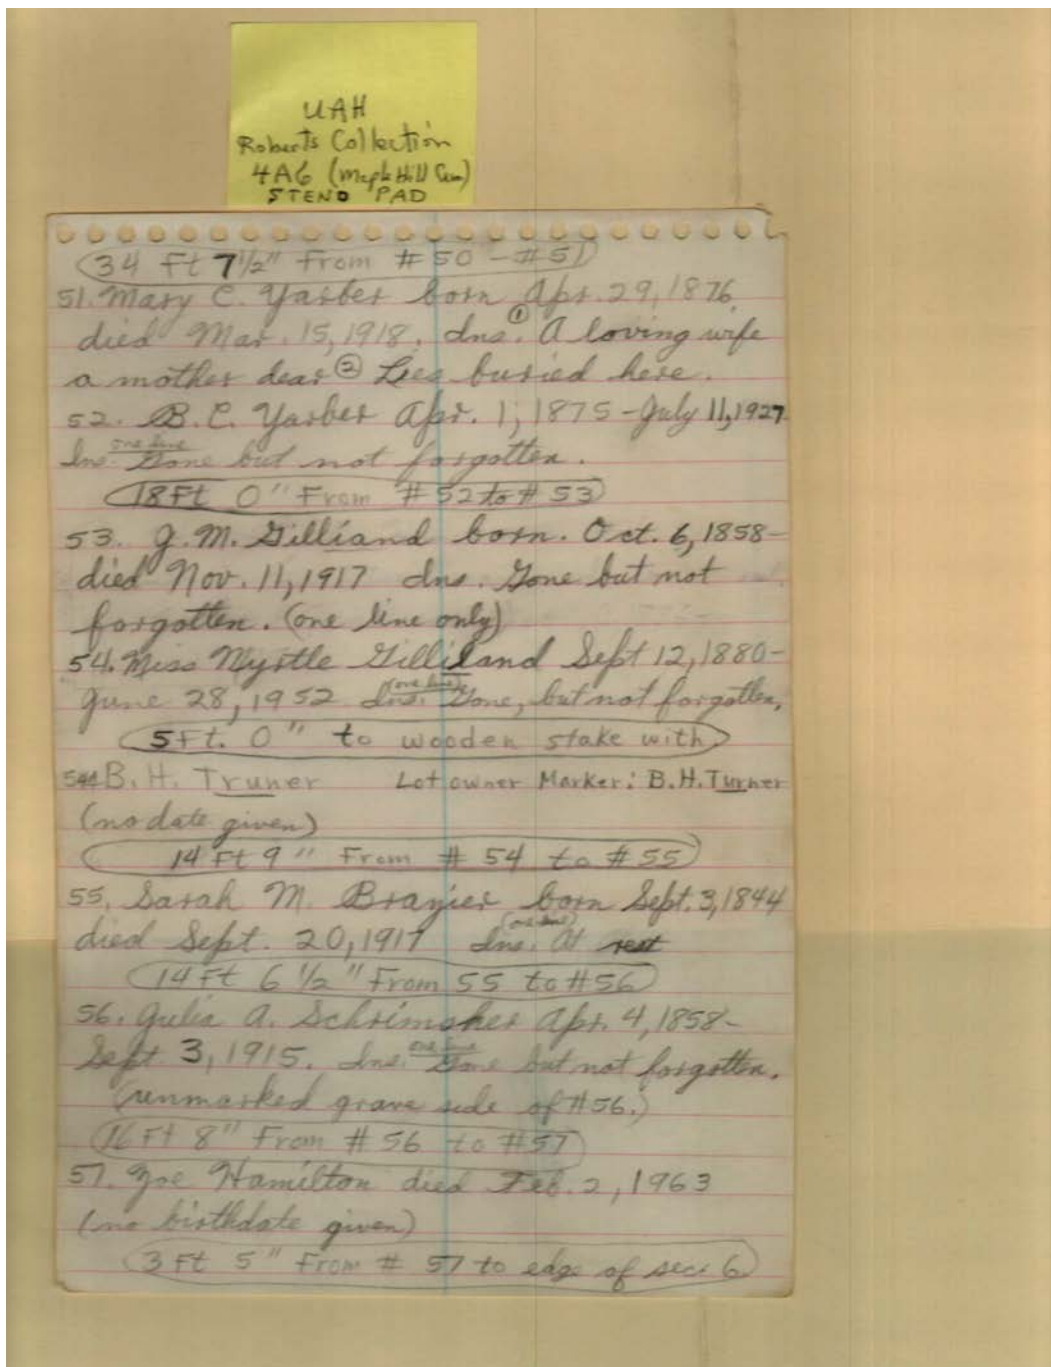 UAH
Roberts Collection
4A6 (Maple Hill Cem)
STENO PAD
34 Ft 7 1/2" From # 50 - # 51
51. Mary C. Yarber born Apr. 29, 1876
died Mar. 15, 1918. Ins. ① A loving wife
a mother dear ② Lies buried here.
52. B. C. Yarber Apr. 1, 1875 - July 11, 1927
Ins. one line Gone but not forgotten.
18Ft 0" From # 52 to # 53
53. J. M. Gilliand born. Oct. 6, 1858-
died Nov. 11, 1917 Ins. Gone but not
forgotten. (one line only)
54. Miss Myrtle Gilliland Sept 12, 1880-
June 28, 1952 Ins. (one line) Gone, but not forgotten.
5Ft. 0" to wooden stake with
54A B. H. Truner Lot owner Marker: B. H. Turner
(no date given)
14 Ft 9" From # 54 to # 55
55. Sarah M. Brazier born Sept. 3, 1844
died Sept. 20, 1917 Ins. (one line) At rest
14 Ft 6 1/2" From 55 to #56
56. Julia A. Schrimsher Apr. 4, 1858-
Sept. 3, 1915. Ins. one line Gone but not forgotten.
(unmarked grave side of #56.)
16 Ft 8" From # 56 to #57
57. Zoe Hamilton died Feb. 2, 1963
(no birthdate given)
3 Ft 5" From # 57 to edge of sec. 6